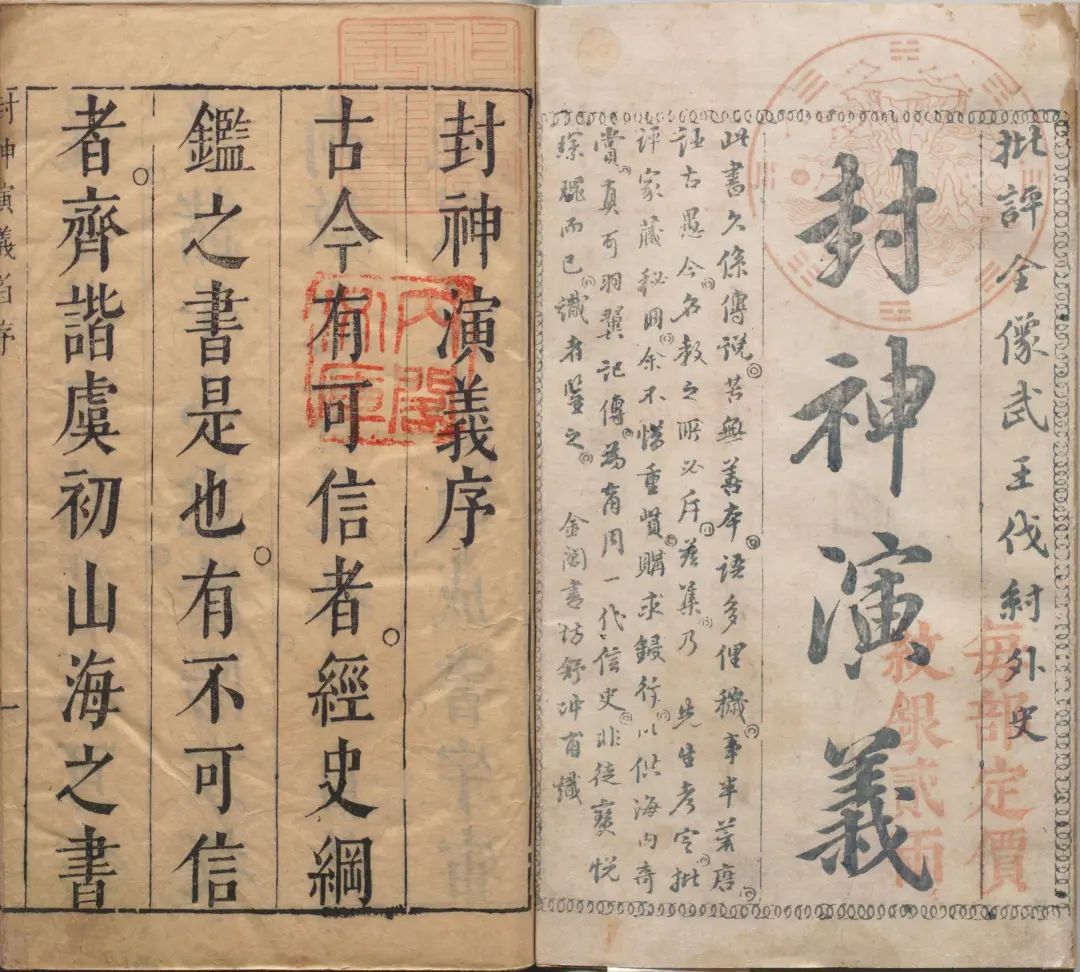 批評全像武王伐紂外史
封神演義
每部定價
紋銀貳兩
此書久係傳說。苦無善本。語多俚穢。事半荒唐。
誣古愚今。名教之所必斥。茲集。乃 先生考定。批
評家藏秘冊。余不惜重貲。購求鋟行。以供海內奇
賞。真可羽翼記傳。為商周一代信史。非徒寶悅
琛瑰而已。識者鑒之。 金閶書坊舒冲甫識
封神演義序
古今有可信者。經史綱
鑑之書是也。有不可信
者。齊諧虞初山海之書
封神演義 序 一
內閣文庫